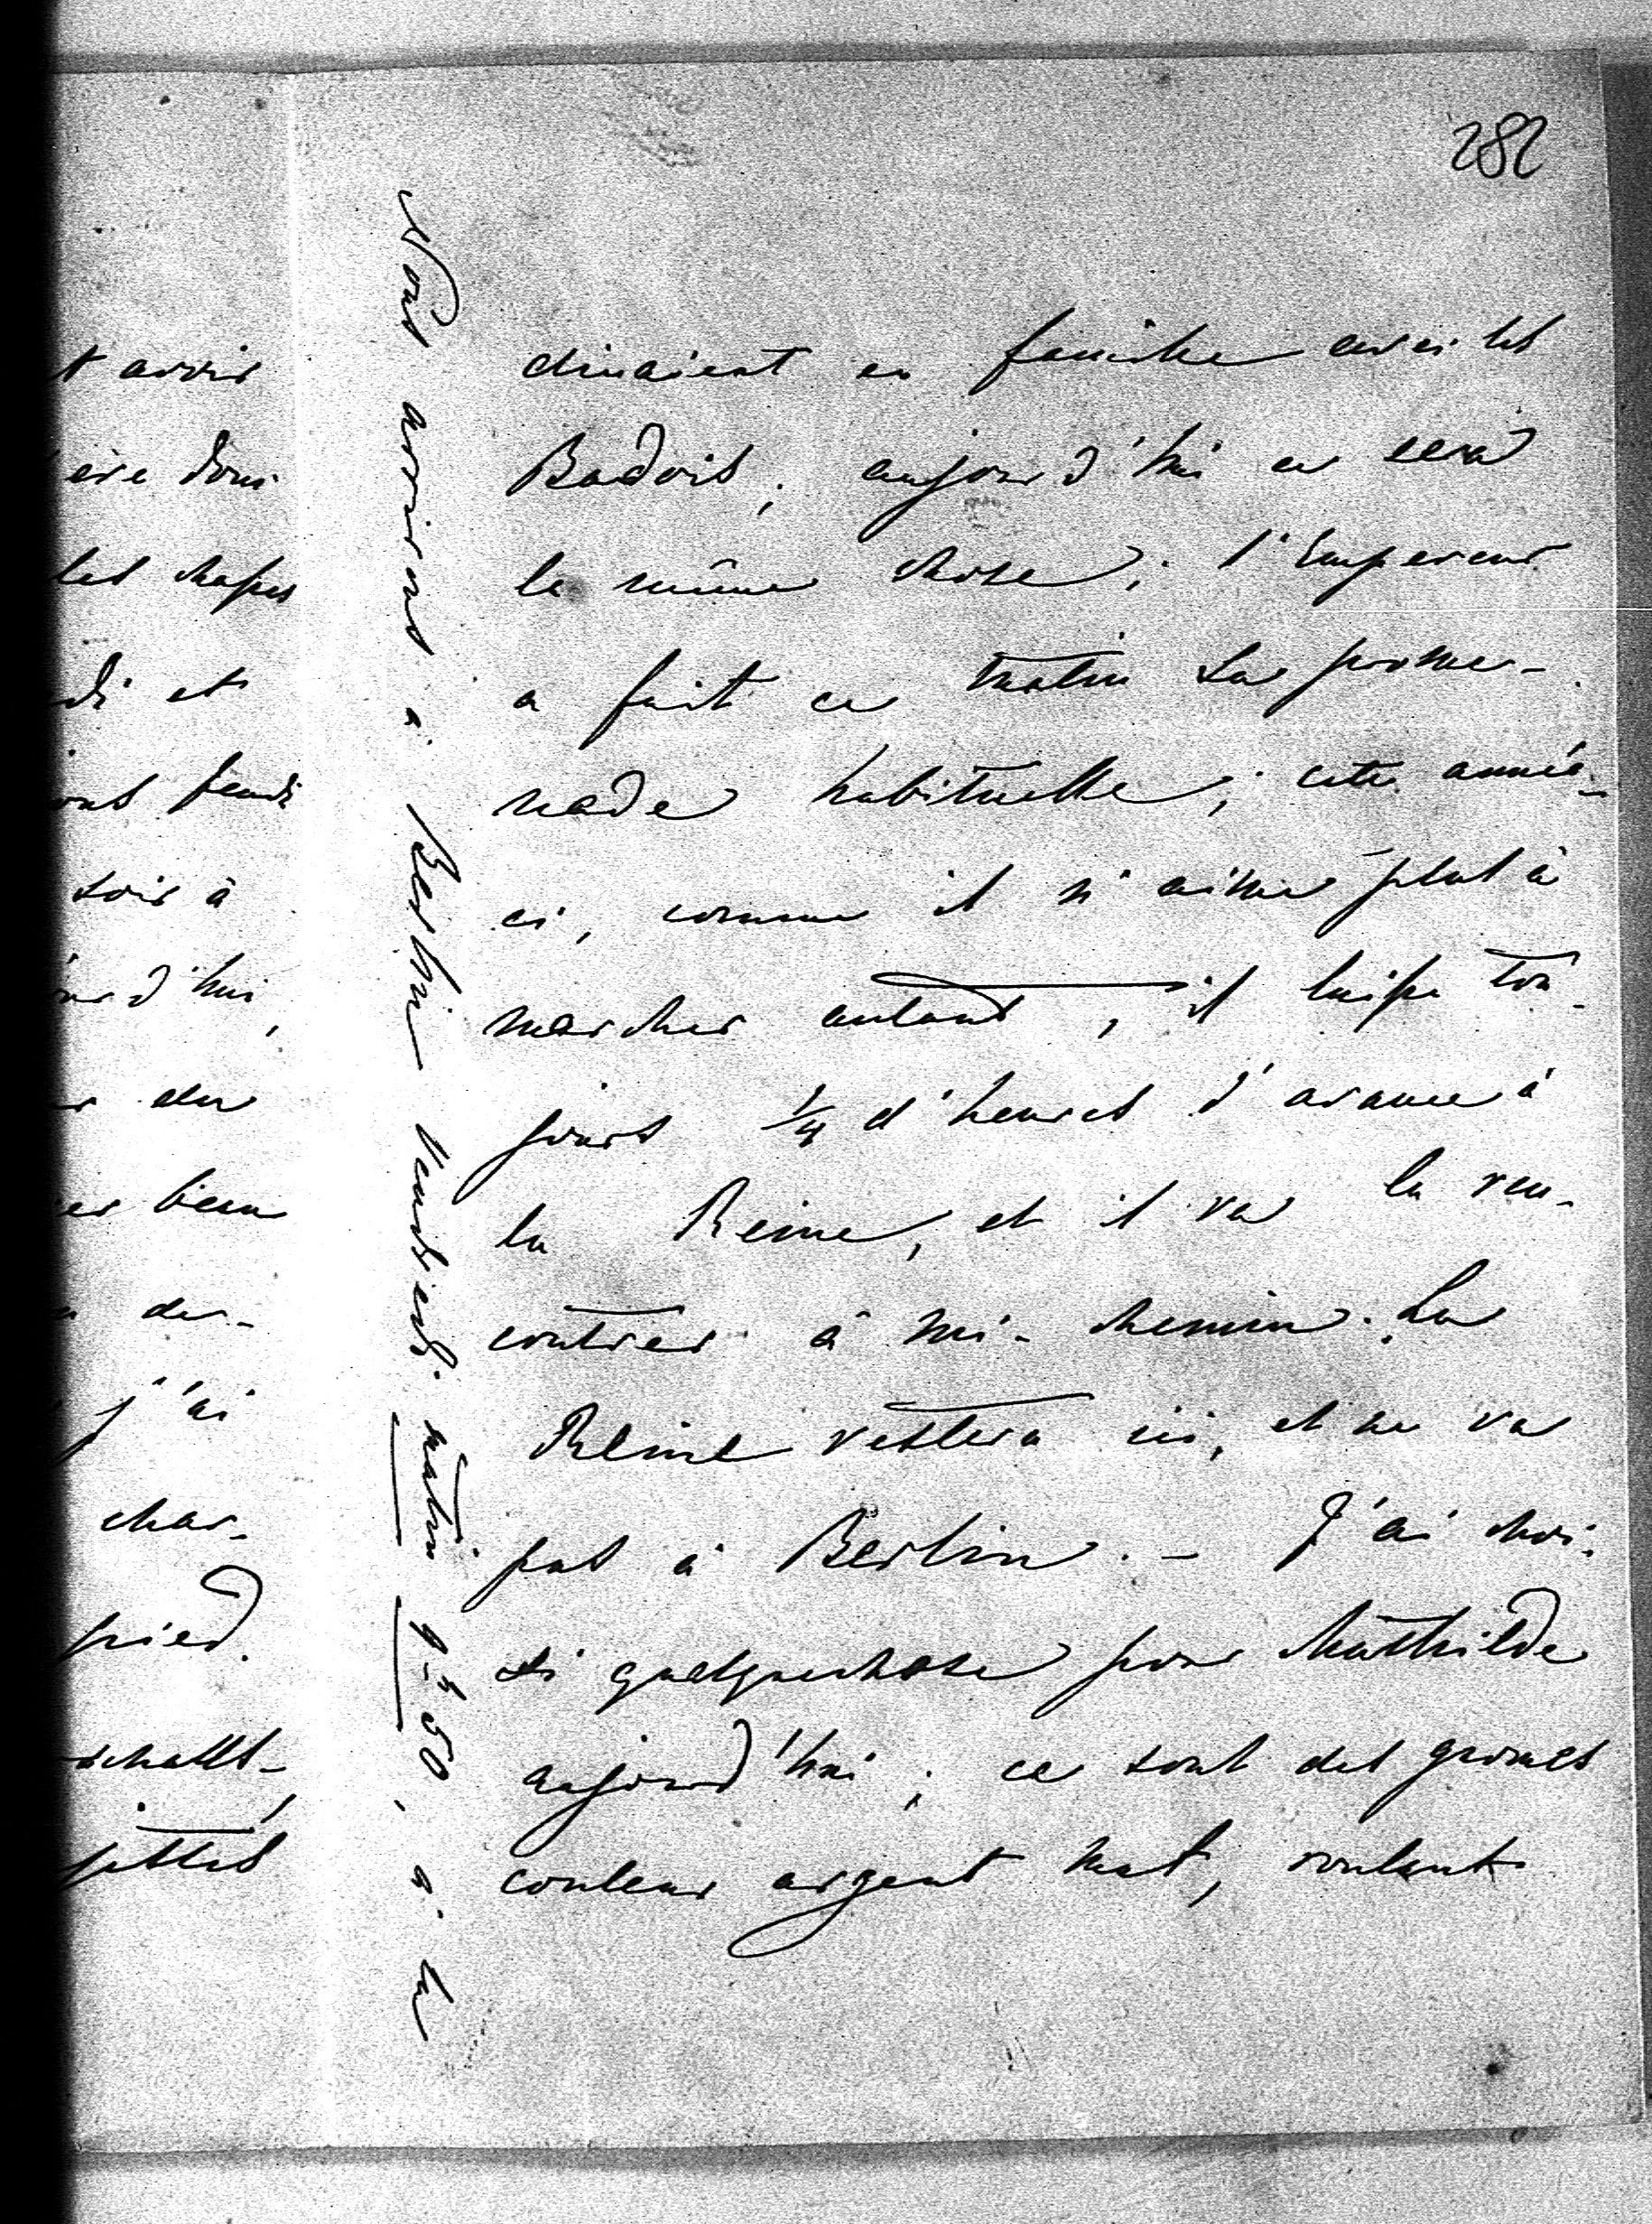 282
dinaient en famille avec les
Badois; aujourd'hui ce sera
la même chose; l'Empereur
a fait ce matin sa prome-
nade habituelle; cette année-
ci, comme il n'aime plus à
marcher autant, il laisse tou-
jours 1/4 d'heures d'avance à
la Reine, et il va la ren-
contrer à mi-chemin. La
Reine restera ici, et ne va
pas à Berlin. - J'ai choi-
si quelquechose pour Mathilde
aujourd'hui; ce sont des
couleur argent mat, roulant
Nous arrivons à Berlin Vendredi matin 9 h 50, à la
t avoir
ère dom
les chasses
di et
ons jeudi
soir à
ourd'hui,
r du
er beau
de-
j'ai
char-
pied.
schalls-,